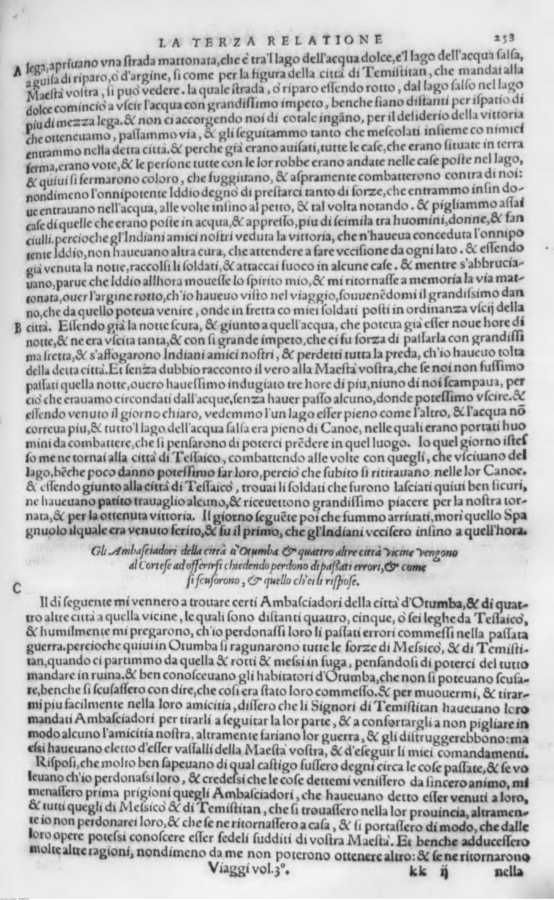 LA TERZA RELATIONE 253
A lega, apriuano vna strada mattonata, che è tra'l lago dell'acqua dolce, e'l lago dell'acqua salsa,
a guisa di riparo, ò d'argine, si come per la figura della città di Temistitan, che mandai alla
Maestà vostra, si può vedere. la quale strada, ò riparo essendo rotto, dal lago salso nel lago
dolce cominciò a vscir l'acqua con grandissimo impeto, benche siano distanti per ispatio di
piu di mezza lega. & non ci accorgendo noi di cotale ingãno, per il desiderio della vittoria
che otteneuamo, passammo via, & gli seguitammo tanto che mescolati insieme co nimici
entrammo nella detta città. & perche già erano auisati, tutte le case, che erano situate in terra
ferma, erano vote, & le persone tutte con le lor robbe erano andate nelle case poste nel lago,
& quiui si fermarono coloro, che fuggirano, & aspramente combatterono contra di noi:
nondimeno l'onnipotente Iddio degnò di prestarci tanto di forze, che entrammo insin do-
ue entrauano nell'acqua, alle volte insino al petto, & tal volta notando. & pigliammo assai
case di quelle che erano poste in acqua, & appresso, piu di seimila tra huomini, donne, & fan
ciulli. percioche gl'Indiani amici nostri veduta la vittoria, che n'haueua conceduta l'onnipo
tente Iddio, non haueuano altra cura, che attendere a fare vccisione da ogni lato. & essendo
già venuta la notte, raccolsi li soldati, & attaccai fuoco in alcune case. & mentre s'abbrucia-
uano, parue che Iddio allhora mouesse lo spirito mio, & mi ritornasse a memoria la via mat-
tonata, ouer l'argine rotto, ch'io haueuo visto nel viaggio, souuenẽdomi il grandissimo dan
no, che da quello poteua venire, onde in fretta co miei soldati posti in ordinanza vscij della
B città. Essendo già la notte scura, & giunto a quell'acqua, che poteua già esser noue hore di
notte, & ne era vscita tanta, & con sì grande impeto, che ci fu forza di passarla con grandissi
ma fretta, & s'affogarono Indiani amici nostri, & perdetti tutta la preda, ch'io haueuo tolta
della detta città. Et senza dubbio racconto il vero alla Maestà vostra, che se noi non fussimo
passati quella notte, ouero hauessimo indugiato tre hore di piu, niuno di noi scampaua, per
ciò che erauamo circondati dall'acque, senza hauer passo alcuno, donde potessimo vscire. &
essendo venuto il giorno chiaro, vedemmo l'un lago esser pieno come l'altro, & l'acqua nõ
correua piu, & tutto'l lago dell'acqua salsa era pieno di Canoe, nelle quali erano portati huo
mini da combattere, che si pensarono di poterci prẽdere in quel luogo. Io quel giorno istes
so me ne tornai alla città di Tessaico, combattendo alle volte con quegli, che vsciuano del
lago, bẽche poco danno potessimo far loro, perciò che subito si ritirauano nelle lor Canoe.
& essendo giunto alla città di Tessaico, trouai li soldati che furono lasciati quiui ben sicuri,
ne haueuano patito trauaglio alcuno, & riceuettono grandissimo piacere per la nostra tor-
nata, & per la ottenuta vittoria. Il giorno seguẽte poi che fummo arriuati, morì quello Spa
gnuolo il quale era venuto ferito, & fu il primo, che gl'Indiani vccisero insino a quell'hora.
Gli Ambasciadori della città d'Otumba & quattro altre città vicine vengono
al Cortese ad offerirsi chiedendo perdono di passati errori, & come
si scusorono, & quello ch'ei li rispose.
C
Il dì seguente mi vennero a trouare certi Ambasciadori della città d'Otumba, & di quat-
tro altre città a quella vicine, le quali sono distanti quattro, cinque, ò sei leghe da Tessaico,
& humilmente mi pregarono, ch'io perdonassi loro li passati errori commessi nella passata
guerra. percioche quiui in Otumba si ragunarono tutte le forze di Messico, & di Temisti-
tan, quando ci partimmo da quella & rotti & messi in fuga, pensandosi di poterci del tutto
mandare in ruina. & ben conosceuano gli habitatori d'Otumba, che non si poteuano scusa-
re, benche si scusassero con dire, che così era stato loro commesso. & per muouermi, & tirar-
mi piu facilmente nella loro amicitia, dissero che li Signori di Temistitan haueuano loro
mandati Ambasciadori per tirarli a seguitar la lor parte, & a confortargli a non pigliare in
modo alcuno l'amicitia nostra, altramente fariano lor guerra, & gli distruggerebbono: ma
essi haueuano eletto d'esser vassalli della Maestà vostra, & d'eseguir li miei comandamenti.
Risposi, che molto ben sapeuano di qual castigo fussero degni circa le cose passate, & se vo
leuano ch'io perdonassi loro, & credessi che le cose dettemi venissero da sincero animo, mi
menassero prima prigioni quegli Ambasciadori, che haueuano detto esser venuti a loro,
& tutti quegli di Messico & di Temistitan, che si trouassero nella lor prouincia, altramen-
te io non perdonarei loro, & che se ne ritornassero a casa, & si portassero di modo, che dalle
loro opere potessi conoscere esser fedeli sudditi di vostra Maestà. Et benche adducessero
molte altre ragioni, nondimeno da me non poterono ottenere altro: & se ne ritornarono
Viaggi vol. 3°. kk ij nella